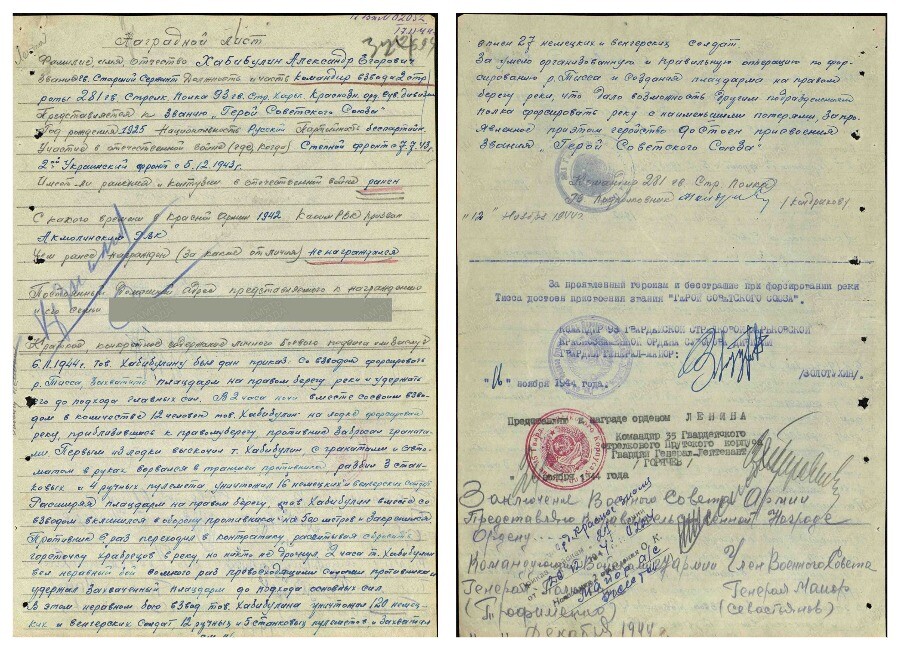 Наградной лист
Фамилия, имя Отчество Хабибулин Александр Егорович
Звание гв. Старший Сержант Должность и часть командир взвода 2 стр
роты 281 гв. Стрелк. Полка 93 гв. Стр. Харьк. Краснозн. орд. Сув. дивизии
Представляется к званию „Герой Советского Союза"
Год рождения 1925 Национальность Русский Партийность беспартийн.
Участие в отечественной войне (где, когда) Степной фронт с 7.7.43,
2ой Украинский фронт с 5.12.1943 г.
Имеет ли ранения и контузии в отечественной войне ранен
С какого времени в Красной Армии 1942. Каким РВК призван
Акмолинским РВК
Чем ранее награжден (за какие отличия) не награждался
Постоянный Домашний Адрес представляемого к награждению
и его семьи
Краткое, конкретное содержание личного боевого подвига или заслуг
6.11.1944г. тов. Хабибулину был дан приказ. Со взводом форсировать
р. Тисса, Захватить плацдарм на правом берегу реки и удержать
его до подхода главных сил. В 2 часа ночи вместе со своим взво-
дом в количестве 12 человек тов. Хабибулин на лодке форсировал
реку, приблизились к правому берегу противник забросал граната-
ми. Первым из лодки выскочил т. Хабибулин с гранатами и авто-
матом в руках ворвался в траншеи противника разбил 3 стан-
ковых и 4 ручных пулемета уничтожил 16 немецких и венгерских солдат
Расширяя плацдарм на правом берегу тов. Хабибулин вместе со
взводом вклинился в оборону противника на 500 метров и закрепился
Противник 6 раз переходил в контратаку, рассчитывая сбросить
горсточку храбрецов в реку, но никто не дрогнул. 2 часа т. Хабибулин
вел неравный бой с много раз превосходящими силами противника и
удержал захваченный плацдарм до подхода основных сил.
В этом неравном бою взвод тов. Хабибулина уничтожил 120 немец-
ких и венгерских солдат 12 ручных и 5 станковых пулеметов и захватил
в плен 27 немецких и венгерских солдат.
За умело организованную и правильную операцию по фор-
сированию р. Тисса и создания плацдарма на правом
берегу реки, что дало возможность другим подразделениям
полка форсировать реку с наименьшими потерями, за про-
явленное при этом геройство достоен присвоения
звания „Герой Советского Союза"
Командир 281 гв Стр Полка
гв Подполковник (Кондрахов)
"12" Ноября 1944г
За проявленный героизм и бесстрашие при форсировании реки
Тисса достоен присвоения звания "ГЕРОЙ СОВЕТСКОГО СОЮЗА".
КОМАНДИР 93 ГВАРДЕЙСКОЙ СТРЕЛКОВОЙ ХАРЬКОВСКОЙ
КРАСНОЗНАМЕННОЙ ОРДЕНА СУВОРОВА ДИВИЗИИ
ГВАРДИИ ГЕНЕРАЛ-МАЙОР:
/ЗОЛОТУХИН/
"16" ноября 1944 года.
Представляю к награде орденом ЛЕНИНА
Командир 35 Гвардейского
Стрелкового Прутского корпуса
Гвардии Генерал-Лейтенант
/ГОРЯЧЕВ/
ноября 1944 года
Заключение Военного Совета Армии
Представляю к Правительственной Награде
Ордену
Командующий Войсками Армии Член Военного Совета
Генерал Генерал Майор
(Трофименко) (Севастьянов)
Декабря 1944г.